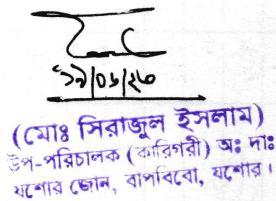 (মোঃ সিরাজুল ইসলাম)
উপ-পরিচালক (কারিগরী) অঃ দাঃ
যশোর জোন, বাপবিবো, যশোর।